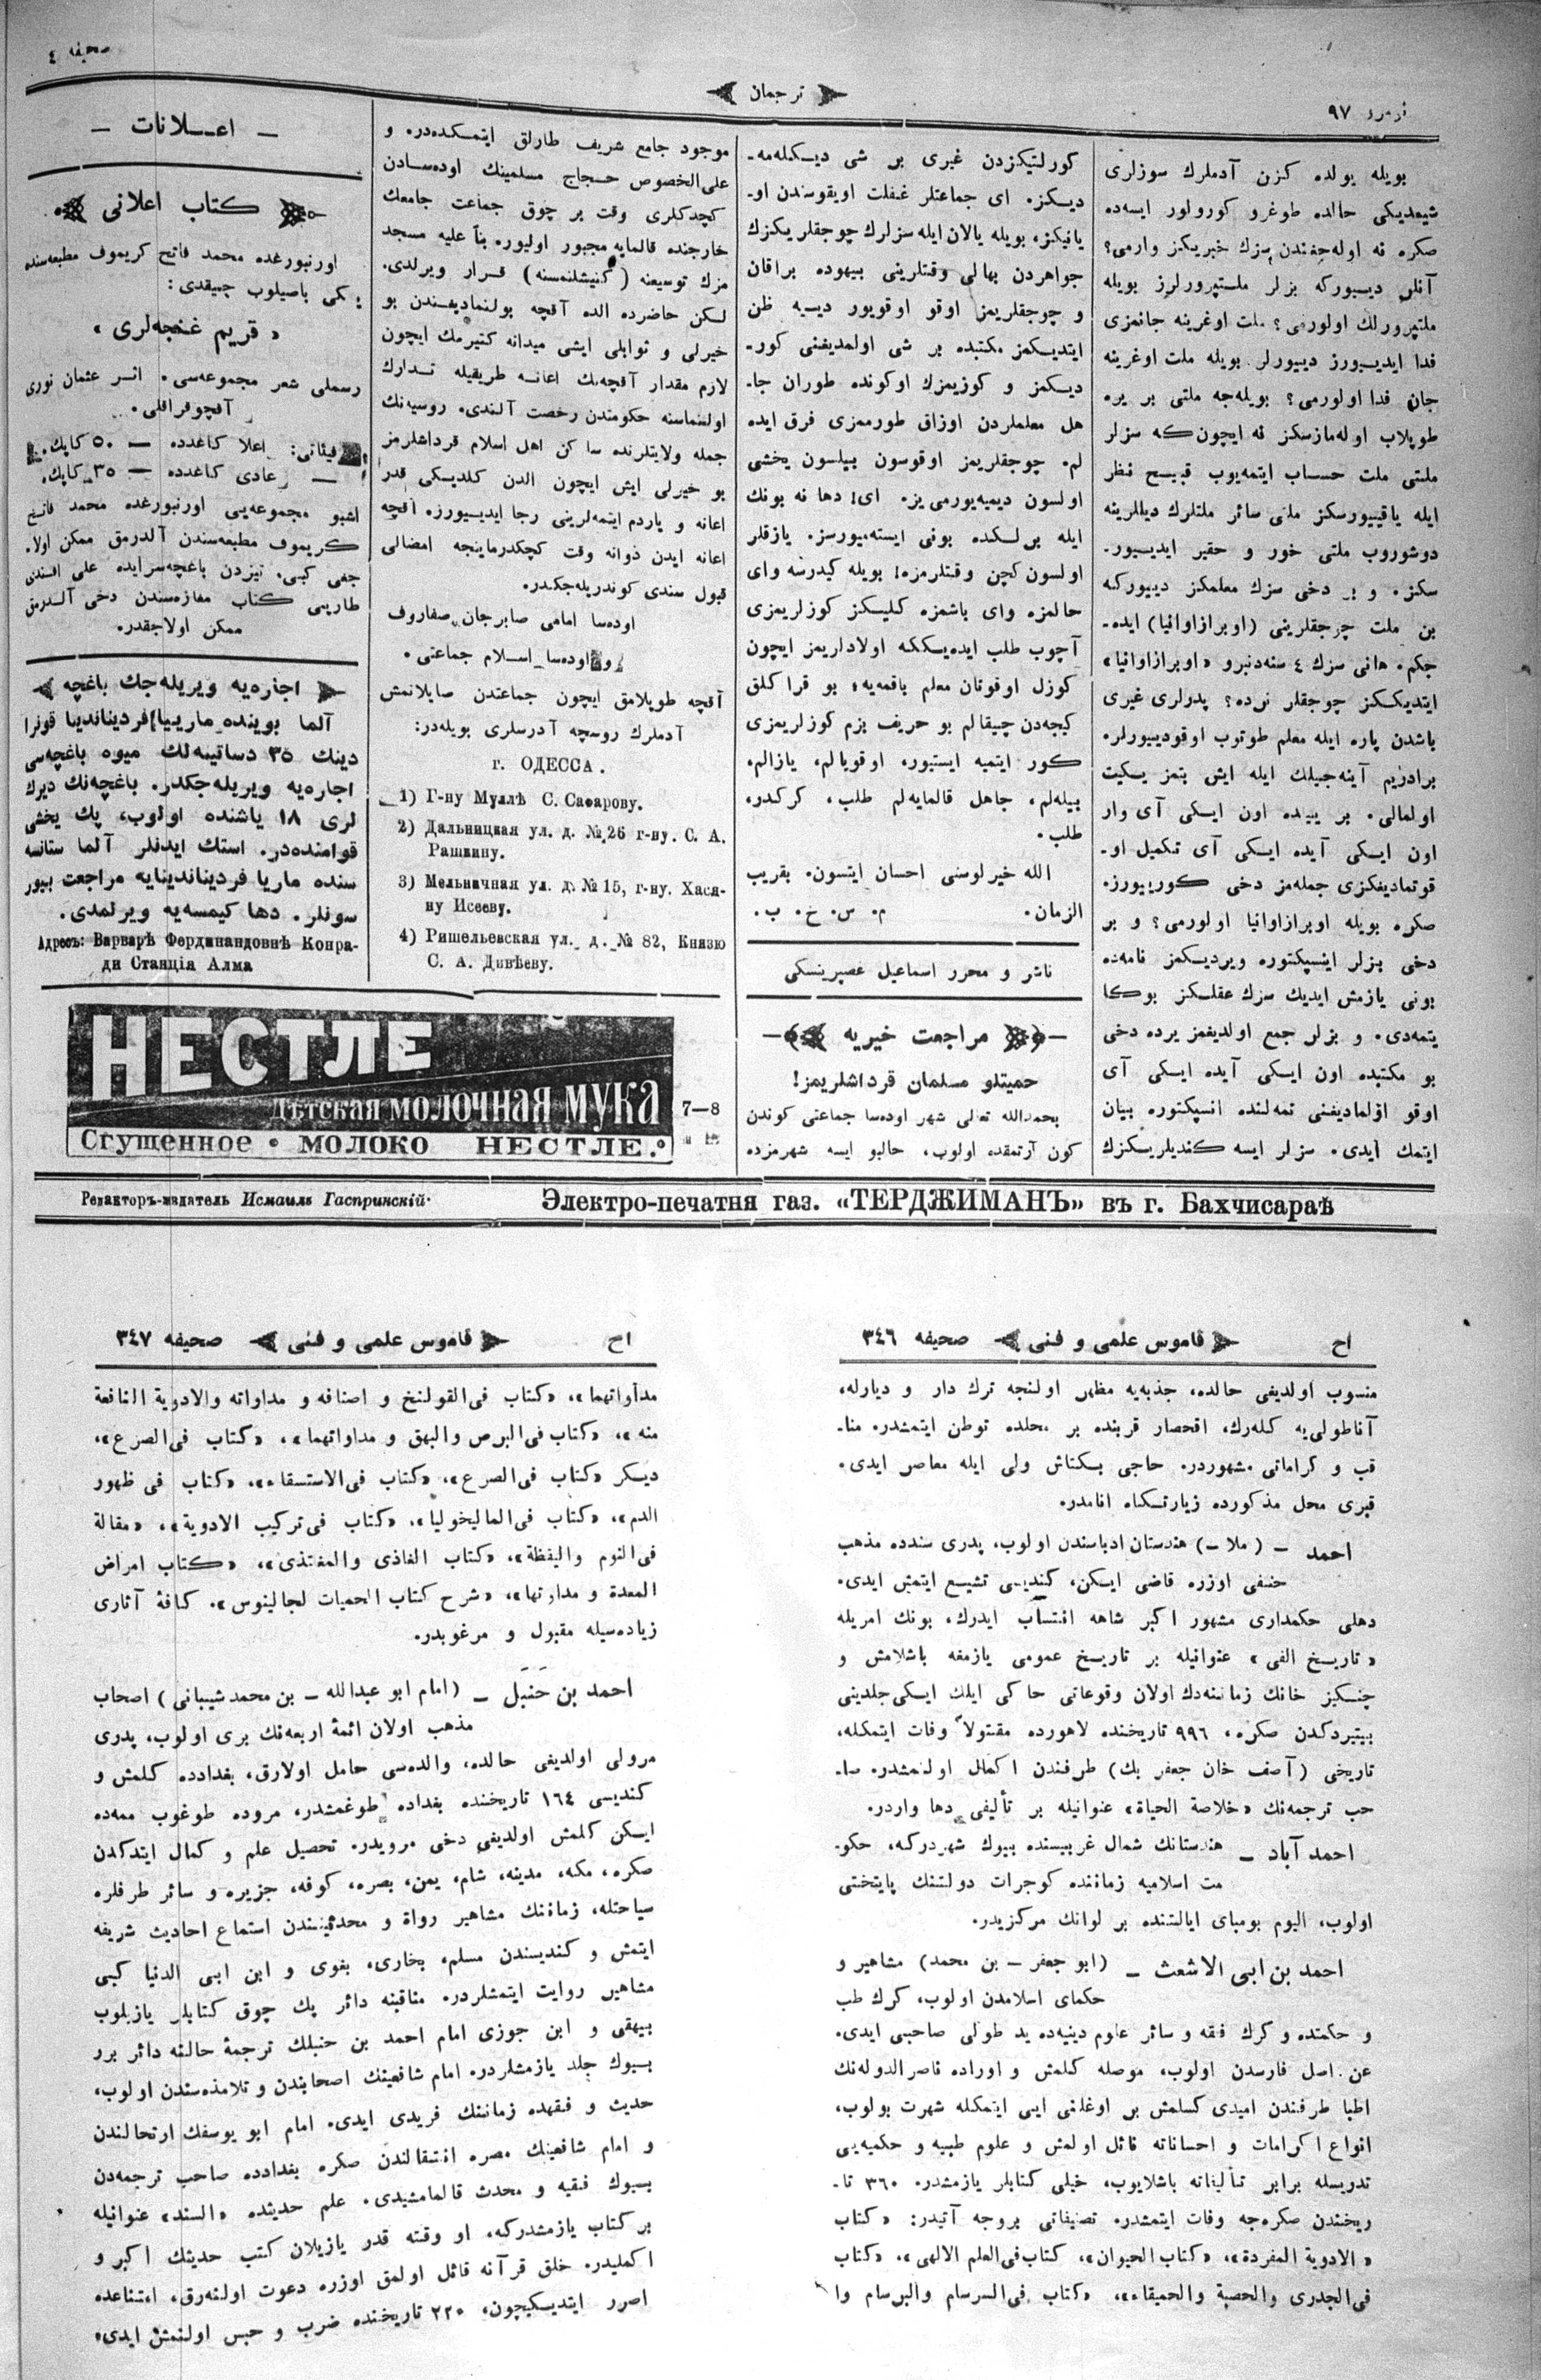 نومرو ٩٧
ترجمان
صحیفه ٤
بویله یولده کزن آدملرك سوزلری
شیمدیکی حالده طوغرو کورولور ایسه‌ده
صکره نه اوله‌جغندن سزك خبریکز وارمی؟
آنلر دیبورکه بزلر ملتپرورلرز بویله
ملتپرورلك اولورمی؟ ملت اوغرینه جانمزی
فدا ایدییورز دییورلر. بویله ملت اوغرینه
جان فدا اولورمی؟ بویله‌جه ملتی بر یره
طوپلاب اوله‌مازسکز نه ایچون که سزلر
ملتی ملت حساب ایتمه‌یوب قبیح نظر
ایله باقییورسکز ملتی سائر ملتلرك دیللرینه
دوشوروب ملتی خور و حقیر ایدییور-
سکز. و بر دخی سزك معلمکز دییورکه
بن ملت چوجقلرینی (اوبرازاوانیا) ایده-
جکم. هانی سزك ٤ سنه‌دنبرو «اوبرازاوانیا»
ایتدیککز چوجقلر نرده؟ پدرلری غیری
باشدن پاره ایله معلم طوتوب اوقودییورلر.
برادریم آینه‌جیلك ایله ایش بتمز یسکیت
اولمالی. بر ییده اون ایکی آی وار
اون ایکی آیده ایکی آی تکمیل او-
قوتمادیفکزی جمله‌مز دخی کوریبورز.
صکره بویله اوبرازاوانیا اولورمی؟ و بر
دخی بزلر اینسپکتوره ویردیکمز نامه‌ده
بونی یازمش ایدیك سزك عقلکز بوکا
یتمه‌دی. و بزلر جمع اولدیغمز یرده دخی
بو مکتبده اون ایکی آیده ایکی آی
اوقو اولمادیفنی انسپکتوره بیان
ایتمك ایدی. سزلر ایسه کندیلریسکزك
کورلتیکزدن غیری بر شی دیکله‌مه-
دیکز. ای جماعتلر غفلت اویقوسندن او-
یانیکز، بویله یالان ایله سزلرك چوجقلریکزك
جواهردن بهالی وقتلرینی بیهوده براقان
و چوجقلریمز اوقو اوقویور دییه ظن
ایتدیکمز مکتبده بر شی اولمدیفنی کور-
دیکمز و کوزیمزك اوکونده طوران جا-
هل معلملردن اوزاق طورممزی فرق ایده
لم. چوجقلریمز اوقوسون بیلسون یخشی
اولسون دیمیه‌یورمی‌یز. ای! دها نه بونك
ایله برلکده بونی ایسته‌میورسز. یازقلر
اولسون کچن وقتلرمزه! بویله کیدرسه وای
حالمزه وای باشمزه کلیکز کوزلریمزی
آچوب طلب ایده‌یسککه اولادلریمز ایچون
کوزل اوقوتان معلم باقمه‌یه؛ بو قراکلق
کیجه‌دن چیقالم بو حریف بزم کوزلریمزی
کور ایتمیه ایستیور، اوقویالم، یازالم.
بیله‌لم، جاهل قالمایه‌لم طلب، کرکدر،
طلب.
الله خیرلوسنی احسان ایتسون. بقریب
الزمان. م. س. خ. ب.
ناشر و محرر اسماعیل غصپرینسکی
مراجعت خیریه
حمیتلو مسلمان قرداشلریمز!
بحمدالله تعالی شهر اوده‌سا جماعتی کوندن
کون آرتمقده اولوب، حالبو ایسه شهرمزده
موجود جامع شریف طارلق ایتمکده‌در. و
علی‌الخصوص حجاج مسلمینك اوده‌سادن
کچدکلری وقت بر چوق جماعت جامعك
خارجنده قالمایه مجبور اولیور. بناً علیه مسجد
مزك توسیعنه (کنیشلنمسنه) قرار ویرلدی.
لکن حاضرده الده آقچه بولنمادیفندن بو
خیرلی و ثوابلی ایشی میدانه کتیرمك ایچون
لازم مقدار آقچه‌نك اعانه طریقیله تدارك
اولنماسنه حکومتدن رخصت آلندی. روسیه‌نك
جمله ولایتلرنده ساکن اهل اسلام قرداشلرمز
بو خیرلی ایش ایچون الدن کلدیکی قدر
اعانه و یاردم ایتمه‌لرینی رجا ایدییورز. آقچه
اعانه ایدن ذوانه وقت کچکدرماینجه امضالی
قبول سندی کوندریله‌جکدر.
اوده‌سا امامی صابرجان صفاروف
و اوده‌سا اسلام جماعتی.
آقچه طوپلامق ایچون جماعتدن صایلانمش
آدملرك روسچه آدرسلری بویله‌در:
г. ОДЕССА.
1) Г-ну Муллѣ С. Сафарову.
2) Дальницкая ул. д. № 26 г-ну. С. А.
Рашкину.
3) Мельничная ул. д. № 15, г-ну. Хася-
ну Исееву.
4) Ришельевская ул. д. № 82, Князю
С. А. Дивѣеву.
— اعلانات —
کتاب اعلانی
اورنبورغده محمد فاتح کریموف مطبعه‌سنده
یکی باصیلوب چیقدی:
« قریم غنجه‌لری »
رسملی شعر مجموعه‌سی. اثر عثمان نوری
آقچوقراقلی.
فیئاتی: اعلا کاغدده — ٥٠ کاپك.
— عادی کاغدده — ٣٥ کاپك.
اشبو مجموعه‌یی اورنبورغده محمد فاتح
کریموف مطبعه‌سندن آلدرمق ممکن اولا-
جغی کبی، تیزدن باغچه‌سرایده علی افندی
طارپی کتاب مغازه‌سندن دخی آلدرمق
ممکن اولاجقدر.
اجاره‌یه ویریله‌جك باغچه
آلما بوینده مارییا فردیناندینا قونرا
دینك ٣٥ دساتینه‌لك میوه باغچه‌سی
اجاره‌یه ویریله‌جکدر. باغچه‌نك دیرك
لری ١٨ یاشنده اولوب، پك یخشی
قوامنده‌در. استك ایدنلر آلما ستانسه
سنده ماریا فردیناندینایه مراجعت بیور
سونلر. دها کیمسه‌یه ویرلمدی.
Адресъ: Варварѣ Фердинандовнѣ Конра-
ди Станція Алма
НЕСТЛЕ
Дѣтская МОЛОЧНАЯ МУКА
Сгущенное • МОЛОКО НЕСТЛЕ.
7—8
Редакторъ-издатель Исмаилъ Гаспринскій.
Электро-печатня газ. «ТЕРДЖИМАНЪ» въ г. Бахчисараѣ
اح قاموس علمی و فنی صحیفه ٣٤٦
منسوب اولدیغی حالده، جذبه‌یه مظهر اولنجه ترك دار و دیارله،
آناطولی‌یه کله‌رك، اقحصار قربنده بر محلده توطن ایتمشدر. منا-
قب و کراماتی مشهوردر. حاجی بکتاش ولی ایله معاصر ایدی.
قبری محل مذکورده زیارتکاه انامدر.
احمد — (ملا —) هندستان ادباسندن اولوب، پدری سندده مذهب
حنفی اوزره قاضی ایکن، کندیسی تشیع ایتمش ایدی.
دهلی حکمداری مشهور اکبر شاهه انتساب ایدرك، بونك امریله
«تاریخ الفی» عنوانیله بر تاریخ عمومی یازمغه باشلامش و
چنکیز خانك زماننه‌دك اولان وقوعاتی حاکی ایلك ایکی جلدینی
بیتیردکدن صکره، ٩٩٦ تاریخنده لاهورده مقتولاً وفات ایتمکله،
تاریخی (آصف خان جعفر بك) طرفندن اکمال اولنمشدر. صا-
حب ترجمه‌نك «خلاصة الحیاة» عنوانیله بر تألیفی دها واردر.
احمد آباد — هندستانك شمال غربیسنده بیوك شهردرکه، حکو-
مت اسلامیه زماننده کوجرات دولتنك پایتختی
اولوب، الیوم بومبای ایالتنده بر لوانك مرکزیدر.
احمد بن ابی الاشعث — (ابو جعفر — بن محمد) مشاهیر و
حکمای اسلامدن اولوب، کرك طب
و حکمتده و کرك فقه و سائر علوم دینیه‌ده ید طولی صاحبی ایدی.
عن اصل فارسدن اولوب، موصله کلمش و اوراده ناصرالدوله‌نك
اطبا طرفندن امیدی کسلمش بر اوغلنی ایی ایتمکله شهرت بولوب،
انواع اکرامات و احساناته نائل اولمش و علوم طبیه و حکمیه‌یی
تدریسله برابر تألیفاته باشلایوب، خیلی کتابلر یازمشدر. ٣٦٠ تا-
ریخندن صکره‌جه وفات ایتمشدر. تصنیفاتی بروجه آتیدر: «کتاب
«الادویة المفردة»، «کتاب الحیوان»، کتاب فی العلم الالهی»، «کتاب
فی الجدری والحصبة والحمیقاء»، «کتاب فی السرسام والبرسام وا
اح قاموس علمی و فنی صحیفه ٣٤٧
مداواتهما»، «کتاب فی القولنج و اصنافه و مداواته والادویة النافعة
منه»، «کتاب فی البرص والبهق و مداواتهما»، «کتاب فی الصرع»،
دیکر «کتاب فی الصرع»، «کتاب فی الاستسقاء»، «کتاب فی ظهور
الدم»، «کتاب فی المالیخولیا»، «کتاب فی ترکیب الادویة»، «مقالة
فی النوم والیقظة»، «کتاب الغاذی والمغتذی»، «کتاب امراض
المعدة و مداوتها»، «شرح کتاب الحمیات لجالینوس». کافهٔ آثاری
زیاده‌سیله مقبول و مرغوبدر.
احمد بن حَنبَل — (امام ابو عبدالله — بن محمد شیبانی) اصحاب
مذهب اولان ائمهٔ اربعه‌نك بری اولوب، پدری
مرولی اولدیغی حالده، والده‌سی حامل اولارق، بغدادده کلمش و
کندیسی ١٦٤ تاریخنده بغداده طوغمشدر، مروده طوغوب ممه‌ده
ایکن کلمش اولدیغی دخی مرویدر. تحصیل علم و کمال ایتدکدن
صکره، مکه، مدینه، شام، یمن، بصره، کوفه، جزیره و سائر طرفلره
سیاحتله، زماننك مشاهیر رواة و محدثیندن استماع احادیث شریفه
ایتمش و کندیسندن مسلم، بخاری، بغوی و ابن ابی الدنیا کبی
مشاهیر روایت ایتمشلردر. مناقبنه دائر پك چوق کتابلر یازیلوب
بیهقی و ابن جوزی امام احمد بن حنبلك ترجمهٔ حالنه دائر برر
بیوك جلد یازمشلردر. امام شافعینك اصحابندن و تلامذه‌سندن اولوب،
حدیث و فقهده زماننك فریدی ایدی. امام ابو یوسفك ارتحالندن
و امام شافعینك مصره انتقالندن صکره بغدادده صاحب ترجمه‌دن
بیوك فقیه و محدث قالمامشیدی. علم حدیثده «السند» عنوانیله
بر کتاب یازمشدرکه، او وقته قدر یازیلان کتب حدیثك اکبر و
اکملیدر. خلق قرآنه قائل اولمق اوزره دعوت اولنه‌رق، امتناعده
اصرر ایتدیکیچون، ٢٢٠ تاریخنده ضرب و حبس اولنمش ایدی.